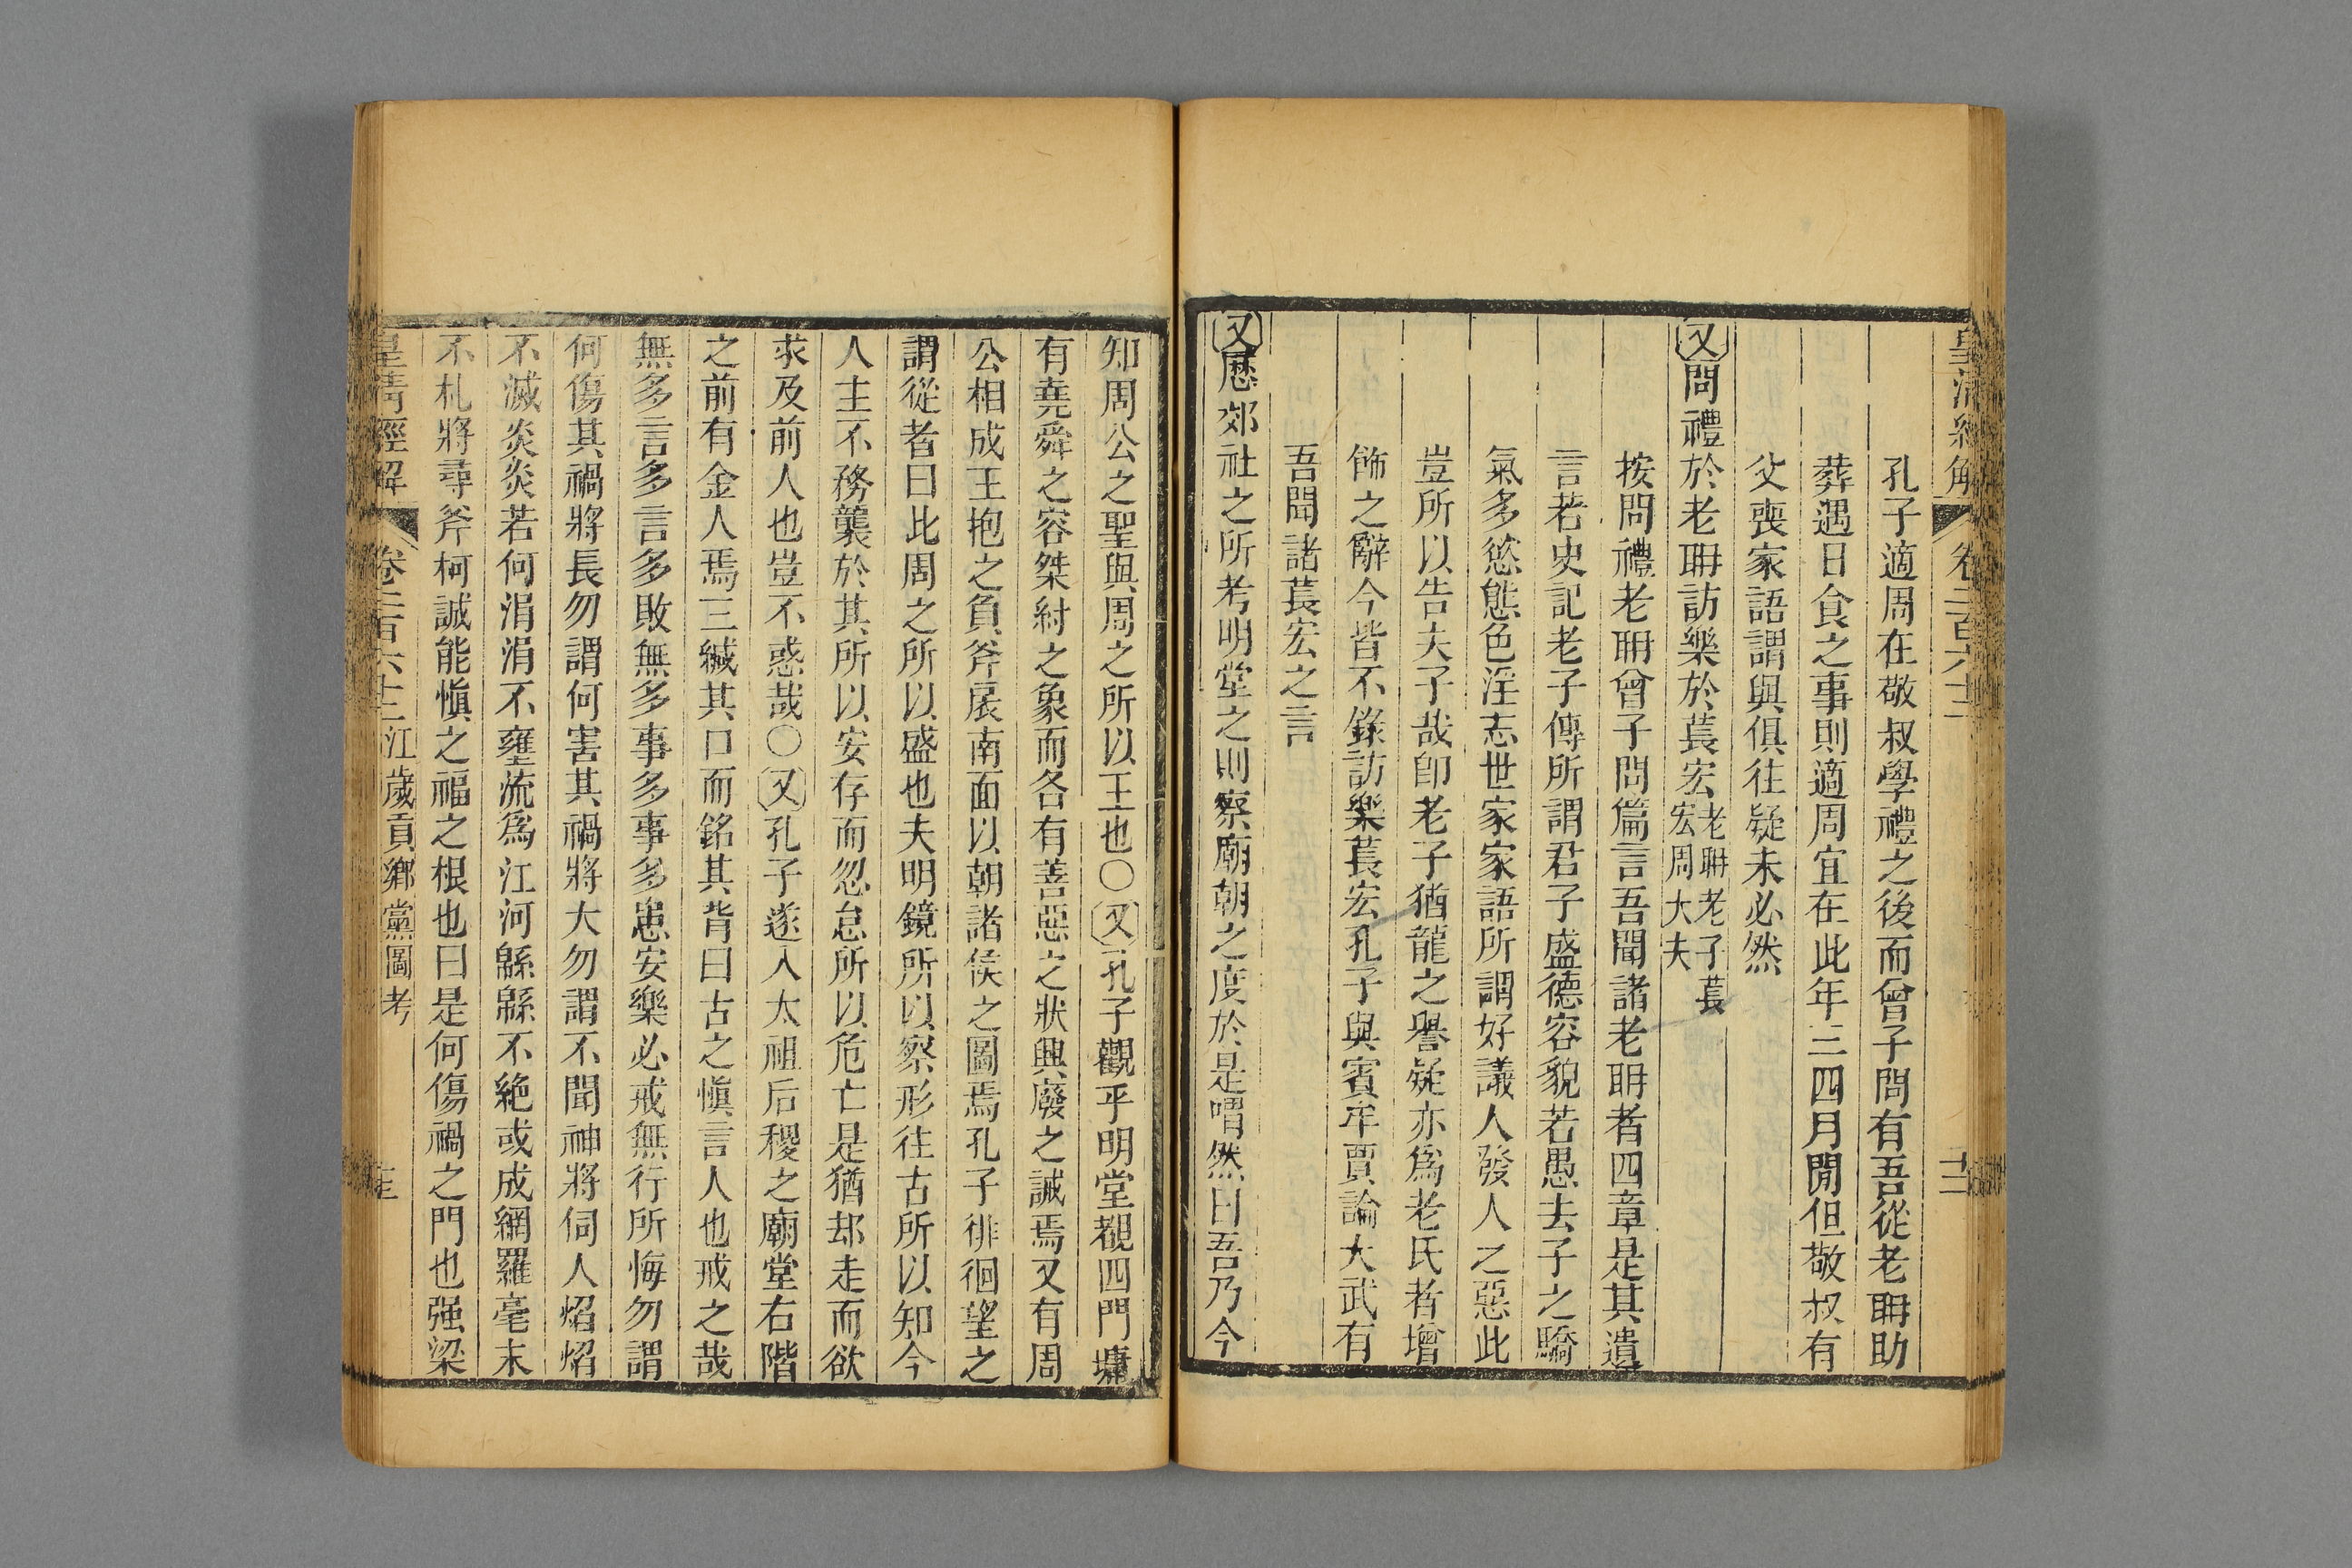 皇清經解 卷二百六十二 十二
孔子適周在敬叔學禮之後而曾子問有吾從老聃助
葬遇日食之事則適周宜在此年三四月閒但敬叔有
父喪家語謂與俱往疑未必然
又問禮於老聃訪樂於萇宏老聃老子萇宏周大夫
按問禮老聃曾子問篇言吾聞諸老聃者四章是其遺
言若史記老子傳所謂君子盛德容貌若愚去子之驕
氣多慾態色淫志世家家語所謂好議人發人之惡此
豈所以告夫子哉卽老子猶龍之譽疑亦爲老氏者增
飾之辭今皆不錄訪樂萇宏孔子與賓牟賈論大武有
吾聞諸萇宏之言
又歷郊社之所考明堂之則察廟朝之度於是喟然曰吾乃今
知周公之聖與周之所以王也○又孔子觀乎明堂覩四門墉
有堯舜之容桀紂之象而各有善惡之狀興廢之誡焉又有周
公相成王抱之負斧扆南面以朝諸侯之圖焉孔子徘徊望之
謂從者曰此周之所以盛也夫明鏡所以察形往古所以知今
人主不務襲於其所以安存而忽怠所以危亡是猶却走而欲
求及前人也豈不惑哉○又孔子遂入太祖后稷之廟堂右階
之前有金人焉三緘其口而銘其背曰古之愼言人也戒之哉
無多言多言多敗無多事多事多患安樂必戒無行所悔勿謂
何傷其禍將長勿謂何害其禍將大勿謂不聞神將伺人焰焰
不滅炎炎若何涓涓不壅流爲江河緜緜不絶或成網羅毫末
不札將尋斧柯誠能愼之福之根也曰是何傷禍之門也强梁
皇清經解 卷二百六十二 江歲貢鄉黨圖考